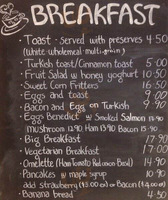 BREAKFAST
• Toast - served with preserves 4.50
(white-wholemeal-multi-grain)
• Turkish toast/Cinnamon toast 5.00
• Fruit Salad w honey yoghurt 10.50
• Sweet Corn Fritters 16.50
• Eggs and toast
• Bacon and Egg on Turkish 9.90
• Eggs Benedict w Smoked Salmon 13.90
mushroom 12.90 Ham 13.90 Bacon
• Big Breakfast 17.90
• Vegetarian Breakfast 17.00
• Omelette (Ham Tomato Red onion Basil) 14.90
• Pancakes w maple syrup 10.90
add strawberry ($3.00 or) Bacon (14.00)
• Banana bread 4.50